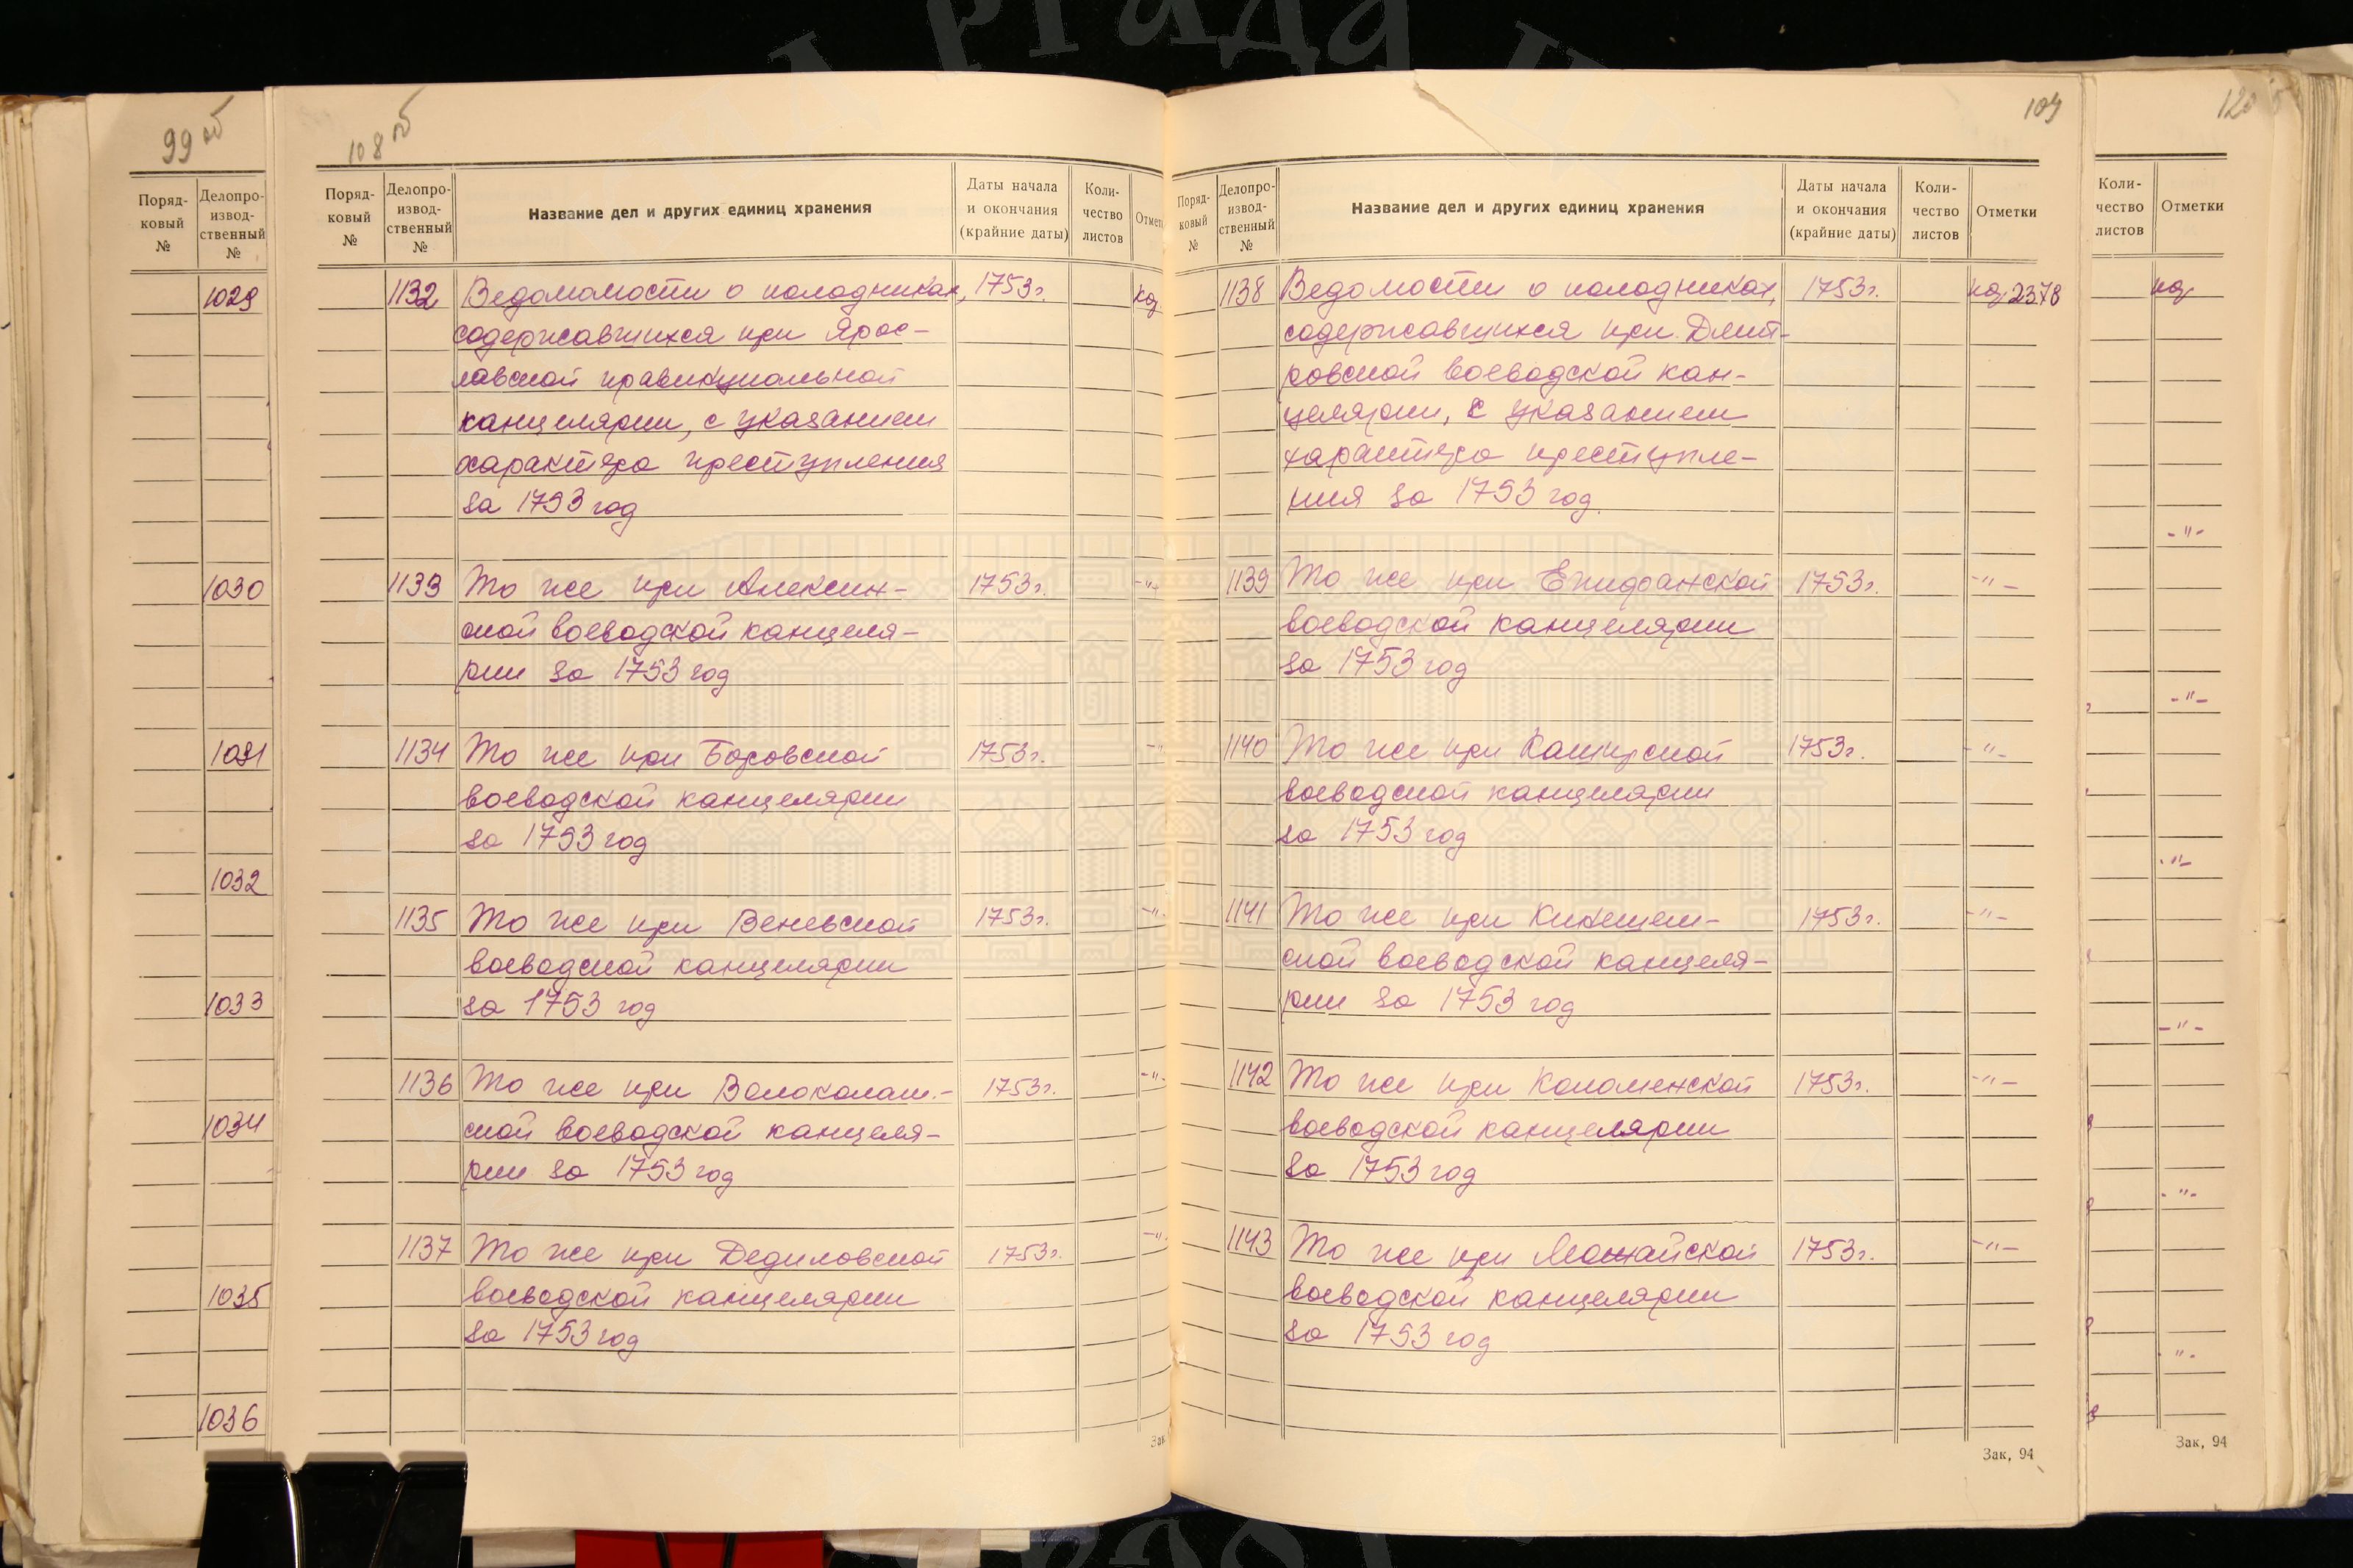 99 об
Поряд-
ковый
№
Делопро-
извод-
ственный
№
1029
1030
1031
1032
1033
1034
1035
1036
108 об
Поряд-
ковый
№
Делопро-
извод-
ственный
№
Название дел и других единиц хранения
Даты начала
и окончания
(крайние даты)
Коли-
чество
листов
1132 Ведомомости о колодниках, 1753 г.
содержавшихся при Ярос-
лавской правинциальной
канцелярии, с указанием
характера преступления
за 1753 год
1133 То же при Алексин- 1753 г. -"-
ской воеводской канцеля-
рии за 1753 год
1134 То же при Боровской 1753 г. -"-
воеводской канцелярии
за 1753 год
1135 То же при Веневской 1753 г. -"-
воеводской канцелярии
за 1753 год
1136 То же при Волоколам- 1753 г. -"-
ской воеводской канцеля-
рии за 1753 год
1137 То же при Дедиловской 1753 г. -"-
воеводской канцелярии
за 1753 год
109
Поряд-
ковый
№
Делопро-
извод-
ственный
№
Название дел и других единиц хранения
Даты начала
и окончания
(крайние даты)
Коли-
чество
листов
Отметки
1138 Ведомости о колодниках, 1753 г. 2378
содержавшихся при Дмит-
ровской воеводской кан-
целярии, с указанием
характера преступле-
ния за 1753 год
1139 То же при Епифанской 1753 г. -"-
воеводской канцелярии
за 1753 год
1140 То же при Каширской 1753 г. -"-
воеводской канцелярии
за 1753 год
1141 То же при Кинешем- 1753 г. -"-
ской воеводской канцеля-
рии за 1753 год
1142 То же при Коломенской 1753 г. -"-
воеводской канцелярии
за 1753 год
1143 То же при Можайской 1753 г. -"-
воеводской канцелярии
за 1753 год
Зак. 94
Коли-
чество
листов
Отметки
-"-
-"-
-"-
-"-
-"-
-"-
Зак. 94